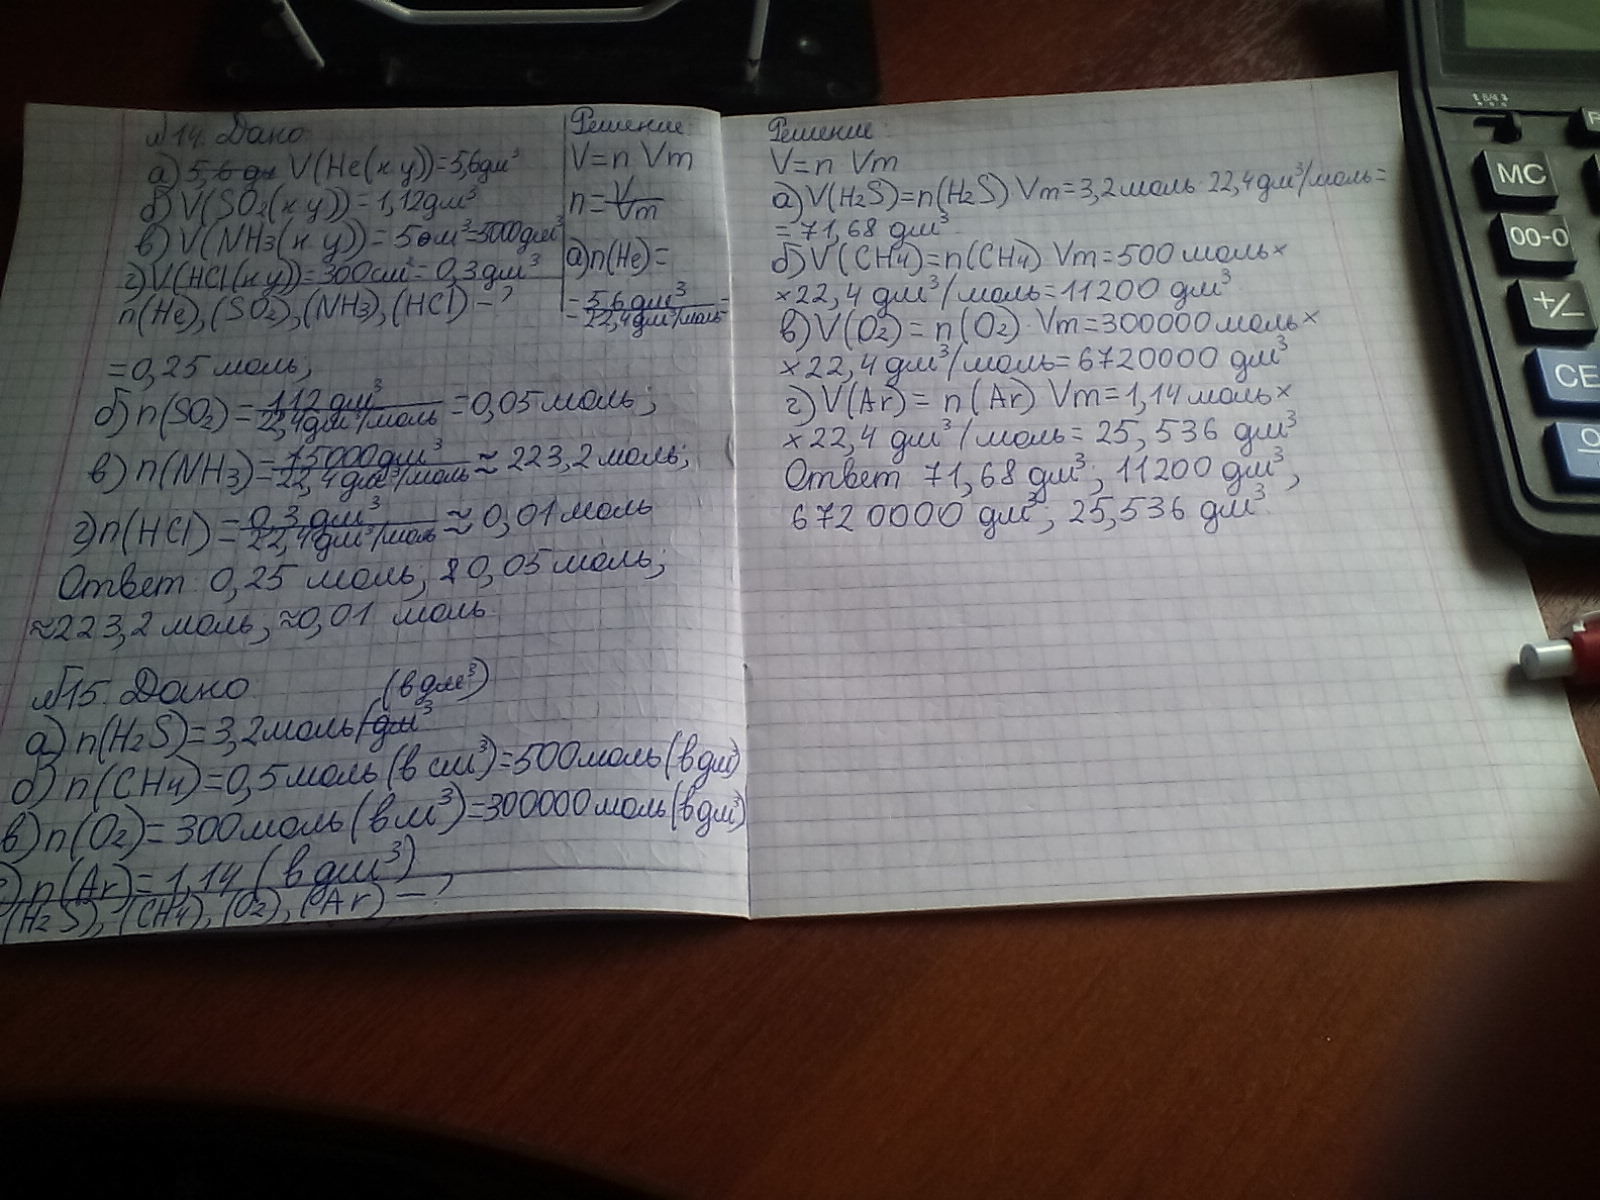 №14. Дано
а) 5,6 дм V(He(н у))=5,6дм³
б) V(SO₂(н у)) = 1,12дм³
в) V(NH₃(н у)) = 5 м³=5000дм³
г) V(HCl(н у)) = 300см³= 0,3дм³
n(He), (SO₂), (NH₃), (HCl) – ?
Решение:
V=n Vm
n=V/Vm
а)n(He)=
=5,6дм³/22,4дм³/моль=
=0,25 моль;
б) n(SO₂)=1,12 дм³/22,4дм³/моль =0,05 моль;
в) n(NH₃)=5000дм³/22,4дм³/моль ≈ 223,2 моль;
г)n(HCl)=0,3 дм³/22,4дм³/моль ≈ 0,01 моль
Ответ 0,25 моль; 0,05 моль;
≈223,2 моль, ≈0,01 моль
№15. Дано
(в дм³)
а) n(H₂S)=3,2моль(дм³
б) n(CH₄)=0,5моль (в см³)=500моль(в дм³)
в) n(O₂)= 300моль (в м³)=300000моль(в дм³)
г) n(Ar)=1,14 (в дм³)
(H₂S), (CH₄), (O₂), (Ar) – ?
Решение:
V=n Vm
а) V(H₂S)=n(H₂S) Vm=3,2моль 22,4дм³/моль=
=71,68 дм³
б) V(CH₄)=n(CH₄) Vm=500 моль×
×22,4 дм³/моль=11200 дм³
в) V(O₂)= n(O₂) · Vm=300000моль×
×22,4 дм³/моль=6720000 дм³
г) V(Ar)= n(Ar) Vm=1,14моль×
×22,4 дм³/моль= 25,536 дм³
Ответ 71,68 дм³; 11200 дм³,
6720000 дм³, 25,536 дм³
MC
00-0
+/-
CE